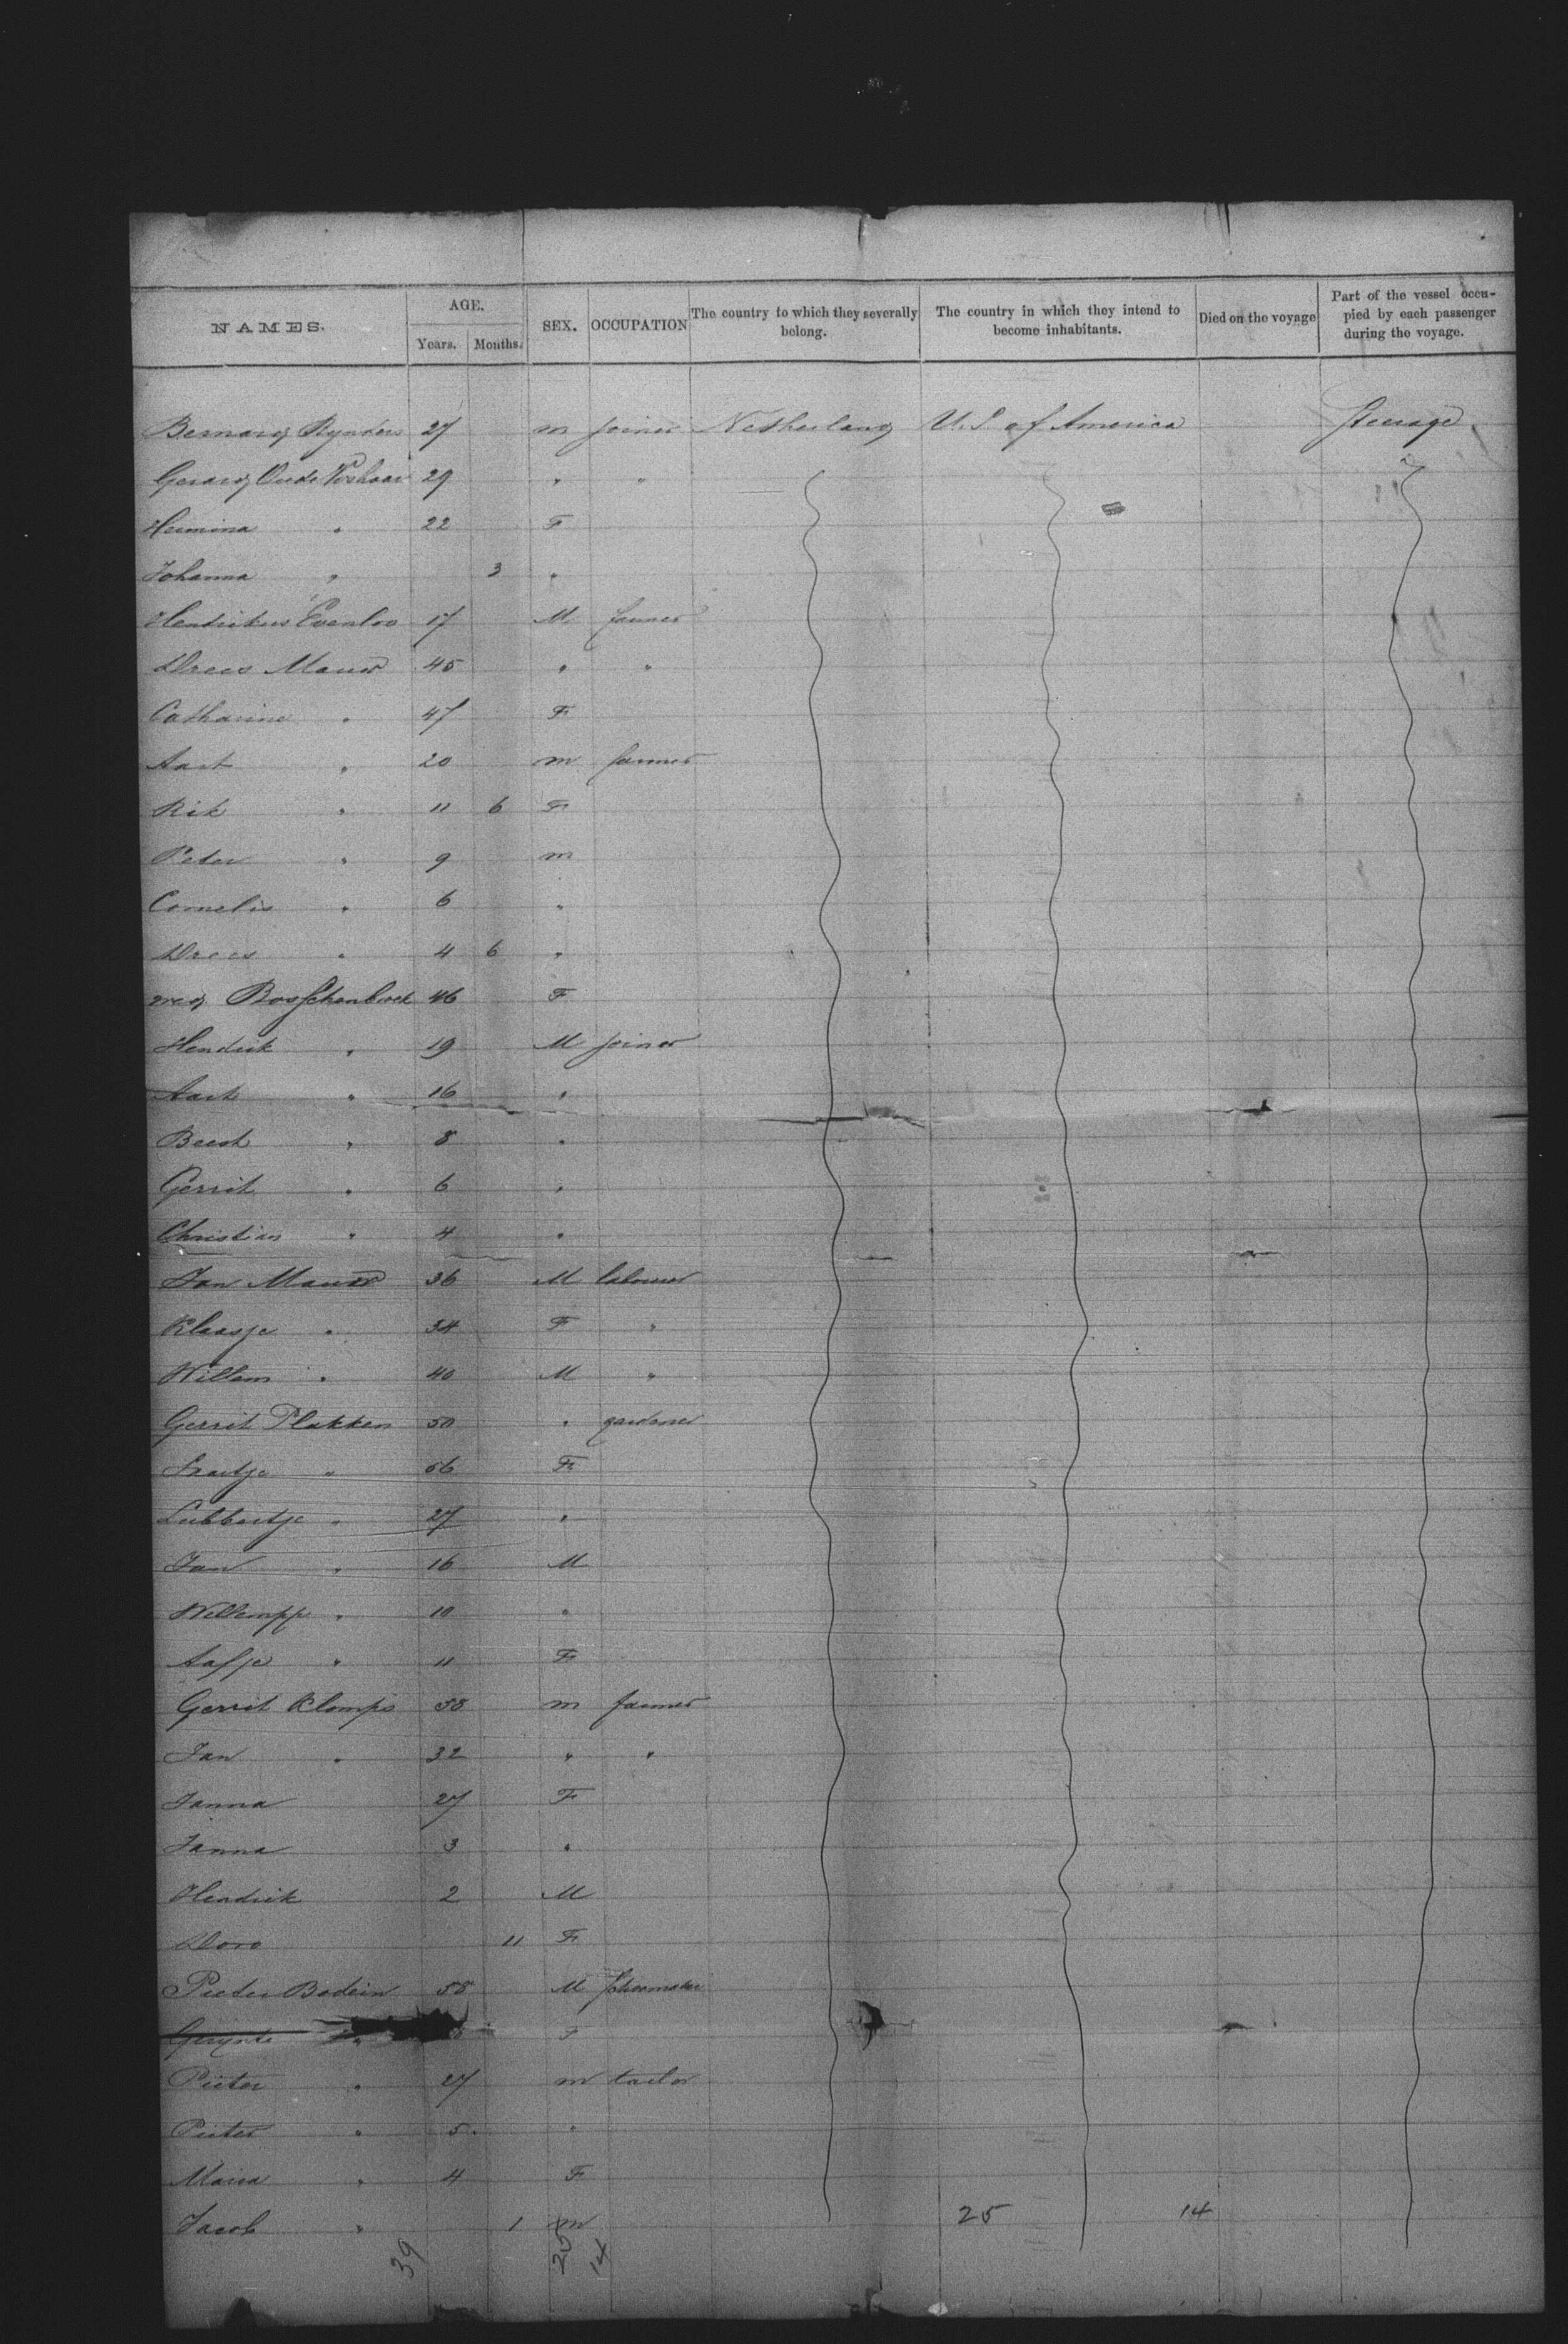 NAMES. AGE. SEX. OCCUPATION The country to which they severally belong. The country in which they intend to become inhabitants. Died on the voyage Part of the vessel occupied by each passenger during the voyage.
Years. Months.
Bernard Rynders 27 m joiner Netherland U.S. of America Steerage
Gerard Oude 29 " "
Hermina " 22 F
Johanna " 3 "
Hendrikus Evenloo 17 M farmer
Drees Maurer 45 " "
Catharine " 47 F
Aart " 20 m farmer
Rik " 11 6 F
Peter " 9 m
Cornelis " 6 "
Drees " 4 6 "
46 F
Hendrik " 19 M joiner
Aart " 16 "
Beert " 8 "
Gerrit " 6 "
Christian " 4 "
Jan Maurer 36 M labourer
Klaasje " 34 F "
Willem " 40 M "
Gerrit Plakken 50 " gardener
" 56 F
Lubbertje " 27 "
Jan " 16 M
" 10 "
Aafje " 11 F
Gerrit Klomps 58 m farmer
Jan " 32 " "
Janna 27 F
Janna 3 "
Hendrik 2 M
Doro 11 F
Pieter Bodein 58 M Schoemaker
" F
Pieter " 27 m tailor
Pieter " 5 "
Maria " 4 F
Jacob " 1 m 25 14
39 25 14